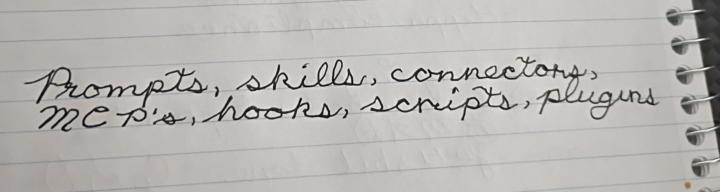 Prompts, skills, connectors,
MCP's, hooks, scripts, plugins